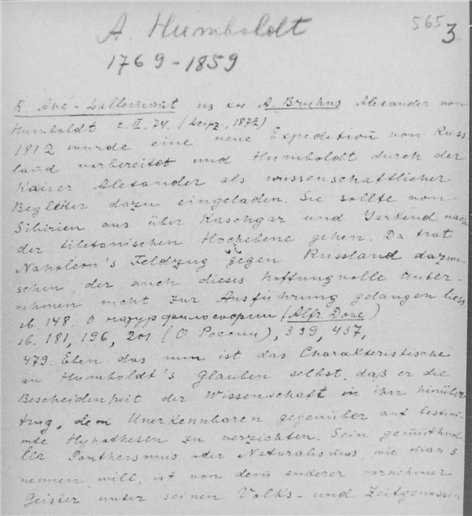 A. Humboldt
565
3
1769-1859
R. Avé-Lallemant из кн A. Bruhns Alexander von
Humboldt т. II. 74. (Leipz, 1872)
1812 wurde eine neue Expedition von Russ
land vorbereitet und Humboldt durch der
Kaiser Alexander als wissenschaftlicher
Begleiter dazu eingeladen. Sie sollte von
Sibirien aus über Kaschgar und Yarkend nach
der tibetanischen Hochebene gehen. Da trat
Napoleon's Feldzug gegen Russland dazwi-
schen, der auch dieses hoffnungsvolle Unter-
nehmen nicht zur Ausführung gelangen liess
ib. 148. О натурфилософии (Alfr. Dove)
ib. 181, 196, 201 (О России), 399. 437,
479. Eben das nun ist das Charakteristische
an Humboldt's Glauben selbst, daß er die
Bescheidenheit der Wissenschaft in ihn hinüber
trug, dem Unerkennbaren gegenüber auf bestim
mte Hypothesen zu verzichten. Sein gemüthvol
ler Pantheismus oder Naturalismus, wie man's
nennen will, ist von dem anderer vornehmer
Geister unter seinen Volks- und Zeitgenossen